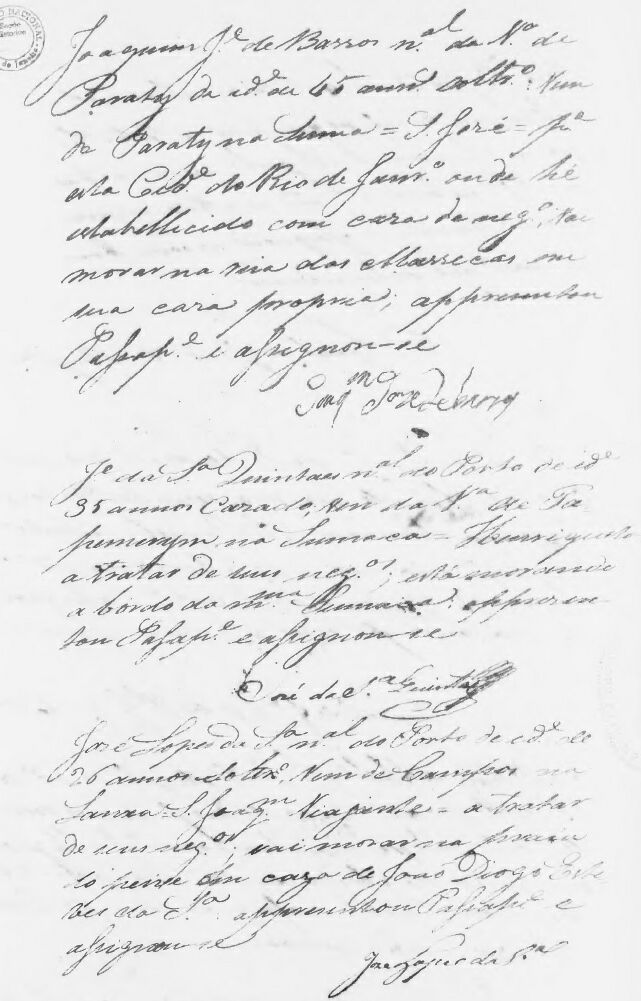 Joaquim J.e de Barros n.al da V.a de
Paraty de id.e de 45 annos soltr.o Vem
de Paraty na Lanxa = S. José = p.a
esta Cid.e do Rio de Janr.o onde hé
estabellicido com caza de neg.o, Vai
morar na rua das Marrecas em
sua caza propria; appresentou
Passap.e e assignou-se
Joaq.mo Joze de barros
J.e da S.a Quintaes n.al do Porto de id.e
35 annos Cazado, Vem da V.a de Ta
pemerym na Sumaca =
a tratar de seus neg.os; está morando
a bordo da m.ma Sumaca appresen
tou Passap.e e assignou-se
José da S.a Quintaes
José Lopes da S.a n.al do Porto de id.e de
26 annos soltr.o, Vem de Campos na
Lanxa = S. Joaq.m Viajante = a tratar
de seus neg.os, vai morar na praia
do peixe em caza de João Diogo Este
ves da S.a appresentou Passap.e e
assignou-se
Joze Lopes da S.a